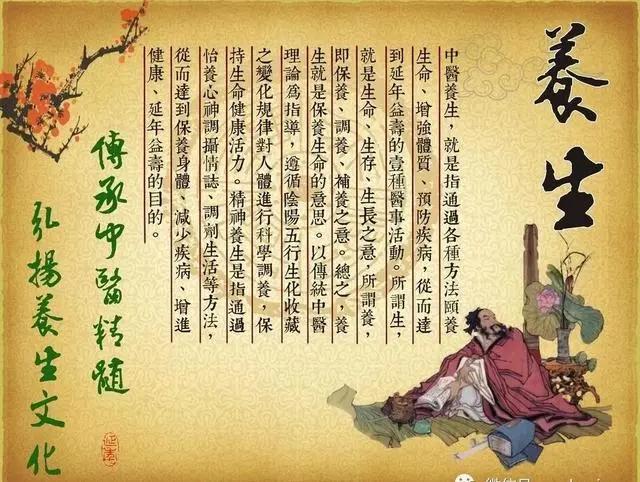 養生
中醫養生，就是指通過各種方法頤養
生命、增強體質、預防疾病，從而達
到延年益壽的壹種醫事活動。所謂生，
就是生命、生存、生長之意，所謂養，
即保養、調養、補養之意。總之，養
生就是保養生命的意思。以傳統中醫
理論爲指導，遵循陰陽五行生化收藏
之變化規律對人體進行科學調養，保
持生命健康活力。精神養生是指通過
怡養心神調攝情誌、調劑生活等方法，
從而達到保養身體、減少疾病、增進
健康、延年益壽的目的。
傳承中醫精髓
弘揚養生文化